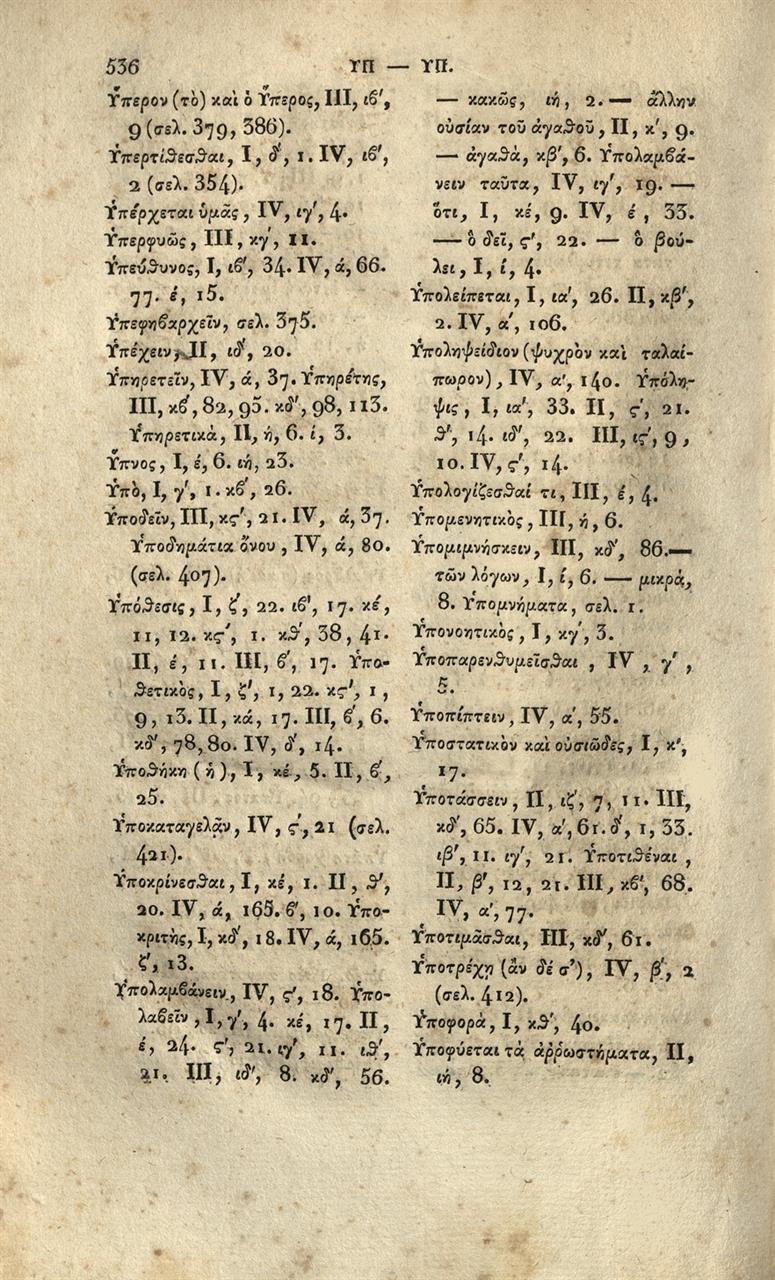 536 ΥΠ — ΥΠ.
Ὕπερον (τὸ) καὶ ὁ Ὕπερος, III, ιϐ′,
9 (σελ. 379, 386).
Ὑπερτίθεσθαι, I, δ′, 1. IV, ιϐ′,
2 (σελ. 354).
Ὑπέρχεται ὑμᾶς, IV, ιγ′, 4.
Ὑπερφυῶς, III, κγ′, 11.
Ὑπεύθυνος, I, ιϐ′, 34. IV, ά, 66.
77. έ, 15.
Ὑπεφηϐαρχεῖν, σελ. 375.
Ὑπέχειν, II, ιδ′, 20.
Ὑπηρετεῖν, IV, ά, 37. Ὑπηρέτης,
III, κϐ′, 82, 95. κδ′, 98, 113.
Ὑπηρετικὰ, II, ή, 6. ί, 3.
Ὕπνος, I, έ, 6. ιή, 23.
Ὑπὸ, I, γ′, 1. κϐ′, 26.
Ὑποδεῖν, III, κϛ′, 21. IV, ά, 37.
Ὑποδημάτια ὄνου, IV, ά, 80.
(σελ. 407).
Ὑπόθεσις, I, ζ′, 22. ιϐ′, 17. κέ,
11, 12. κϛ′, 1. κθ′, 38, 41.
II, έ, 11. III, ϐ′, 17. Ὑπο-
θετικὸς, I, ζ′, 1, 22. κϛ′, 1,
9, 13. II, κά, 17. III, ϐ′, 6.
κδ′, 78, 80. IV, δ′, 14.
Ὑποθήκη (ἡ), I, κέ, 5. II, ϐ′,
25.
Ὑποκαταγελᾷν, IV, ϛ′, 21 (σελ.
421).
Ὑποκρίνεσθαι, I, κέ, 1. II, θ′,
20. IV, ά, 165. ϐ′, 10. Ὑπο-
κριτὴς, I, κδ′, 18. IV, ά, 165.
ζ′, 13.
Ὑπολαμϐάνειν, IV, ϛ′, 18. Ὑπο-
λαϐεῖν, I, γ′, 4. κέ, 17. II,
έ, 24. ϛ′, 21. ιγ′, 11. ιθ′,
21. III, ιδ′, 8. κδ′, 56.
— κακῶς, ιή, 2. — ἄλλην
οὐσίαν τοῦ ἀγαθοῦ, II, κ′, 9.
— ἀγαθὰ, κβ′, 6. Ὑπολαμβά-
νειν ταῦτα, IV, ιγ′, 19. —
ὅτι, I, κέ, 9. IV, έ, 33.
— ὃ δεῖ, ϛ′, 22. — ὃ βού-
λει, I, ί, 4.
Ὑπολείπεται, I, ια′, 26. II, κβ′,
2. IV, α′, 106.
Ὑποληψείδιον (ψυχρὸν καὶ ταλαί-
πωρον), IV, α′, 140. Ὑπόλη-
ψις, I, ια′, 33. II, ϛ′, 21.
θ′, 14. ιδ′, 22. III, ιϛ′, 9,
10. IV, ϛ′, 14.
Ὑπολογίζεσθαί τι, III, έ, 4.
Ὑπομενητικὸς, III, ή, 6.
Ὑπομιμνήσκειν, III, κδ′, 86. —
τῶν λόγων, I, ί, 6. — μικρὰ,
8. Ὑπομνήματα, σελ. 1.
Ὑπονοητικὸς, I, κγ′, 3.
Ὑποπαρενθυμεῖσθαι, IV, γ′,
5.
Ὑποπίπτειν, IV, α′, 55.
Ὑποστατικὸν καὶ οὐσιῶδες, I, κ′,
17.
Ὑποτάσσειν, II, ιζ′, 7, 11. III,
κδ′, 65. IV, α′, 61. δ′, 1, 33.
ιβ′, 11. ιγ′, 21. Ὑποτιθέναι,
II, β′, 12, 21. III, κϐ′, 68.
IV, α′, 77.
Ὑποτιμᾶσθαι, III, κδ′, 61.
Ὑποτρέχῃ (ἂν δέ σ’), IV, β′, 2
(σελ. 412).
Ὑποφορὰ, I, κθ′, 40.
Ὑποφύεται τὰ ἀῤῥωστήματα, II,
ιή, 8.